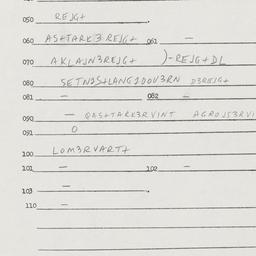 050 REJG+
060 AS+TARK3REJG+ 061 —
070 AKLAJN3REJG+ )-REJG+DL
080 SETNJS+LANG1DOV3RN D3REJG+
081 — 082 —
090 — QAS+TARK3RVINT AGROJS3RVI
091 O
100 LOM3RVART+
101 — 102 —
103 —
110 —